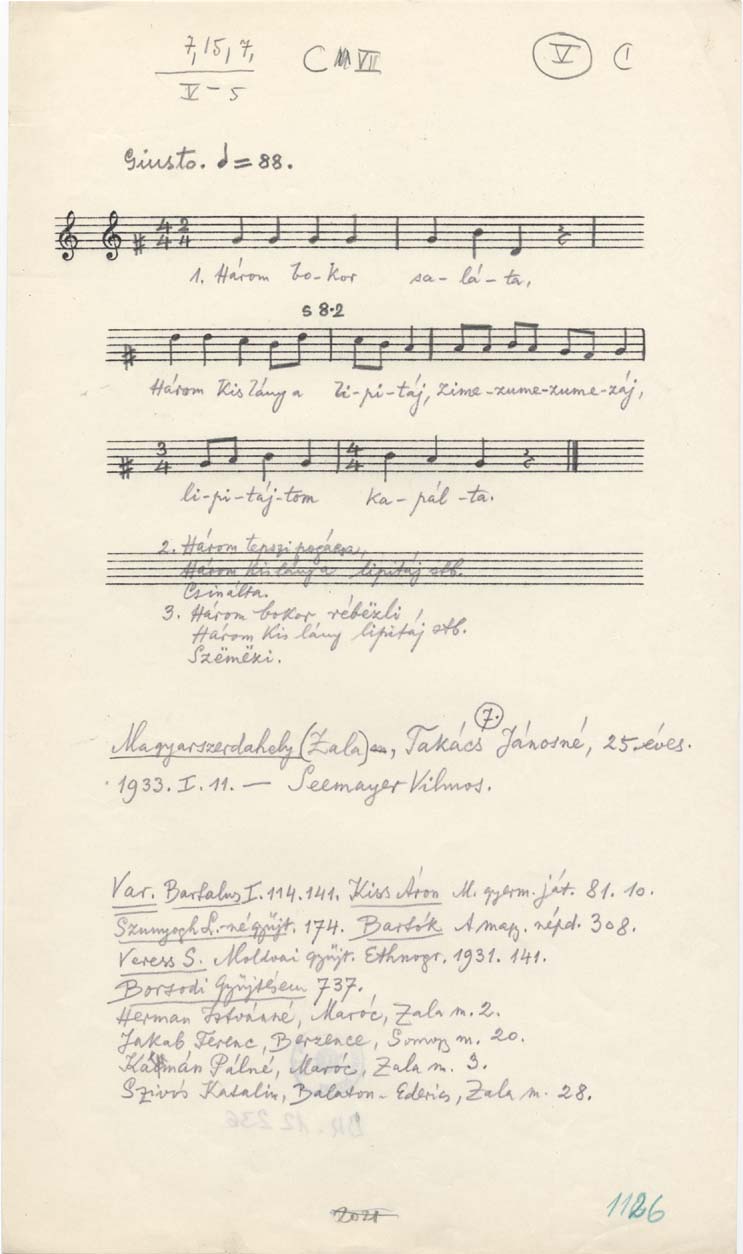 7, 15, 7,
V - 5
C VII
V C
Giusto. = 88.
4 2
4 4
1. Három bo-kor sa-lá-ta,
s 8-2
Három kis lány a li-pi-táj, zime-zume-zume-záj,
3 4
4 4
li-pi-táj-tom ka-pál-ta.
2. Három tepszi pogácsa,
Három kis lány a lipitáj stb.
Csinálta.
3. Három bokor rébëzli,
Három kis lány lipitáj stb.
Szëmëzi.
7.
Magyarszerdahely (Zala), Takács Jánosné, 25 éves.
1933. I. 11. — Seemayer Vilmos.
Var. Bartalus I. 114. 141. Kiss Áron M. gyerm. ját. 81. 10.
Szunyogh L.-né gyűjt. 174. Bartók A mag. népd. 308.
Veress S. Moldvai gyűjt. Ethnogr. 1931. 141.
Borsodi Gyűjtésem 737.
Herman Istvánné, Maróc, Zala m. 2.
Jakab Ferenc, Berzence, Somogy m. 20.
Kálmán Pálné, Maróc, Zala m. 3.
Szivós Katalin, Balaton-Ederics, Zala m. 28.
BR. 12 236
2021
1126